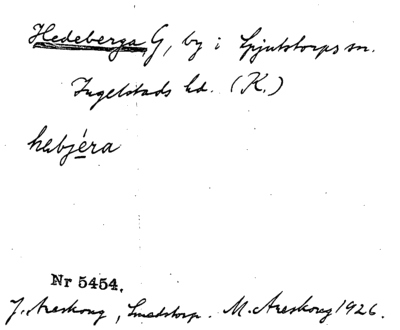 Hedeberga, G, by i Spjutstorps sn.
Ingelstads hd. (K.)
hebjéra
Nr 5454.
J. Areskoug, Smedstorp. M. Areskoug 1926.